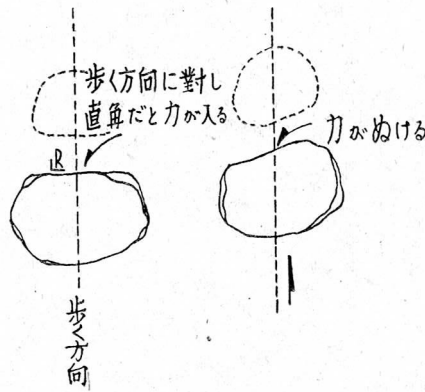 歩く方向に對し
直角だと力が入る
力がぬける
R
歩く方向